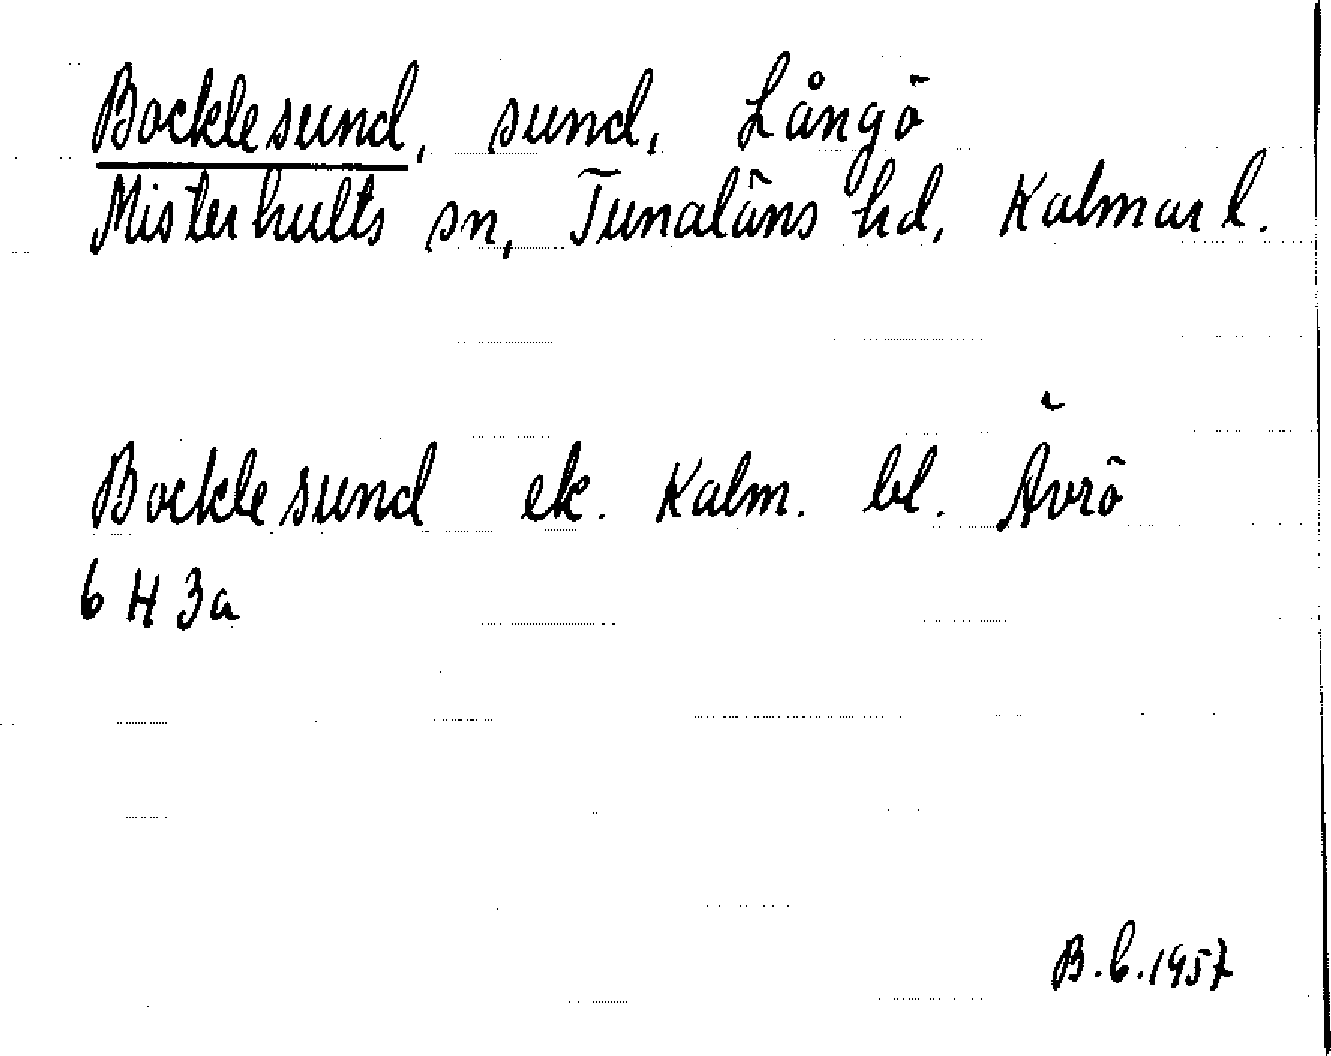 Bocklesund, sund, Långö
Misterhults sn, Tunaläns hd, Kalmar l.
Bocklesund ek. Kalm. bl. Ävrö
6 H 3a
B.b.1957